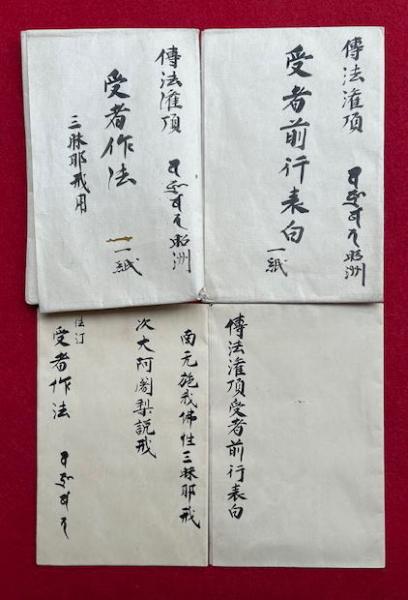 傳法潅頂
昭洲
受者前行表白
一紙
傳法潅頂
昭洲
受者作法 一紙
三昧耶戒用
傳法潅頂受者前行表白
南无施戒佛性三昧耶戒
次大阿闍梨説戒
受者作法